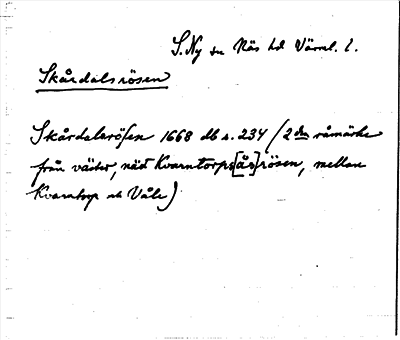 S. Ny sn Näs hd Värml. l.
Skårdalsrösen
Skårdalsrösen 1668 db s. 234 (2 den råmärke
från väster, näst Kvarntorps[ås]rösen, mellan
Kvarntorp och Våle)